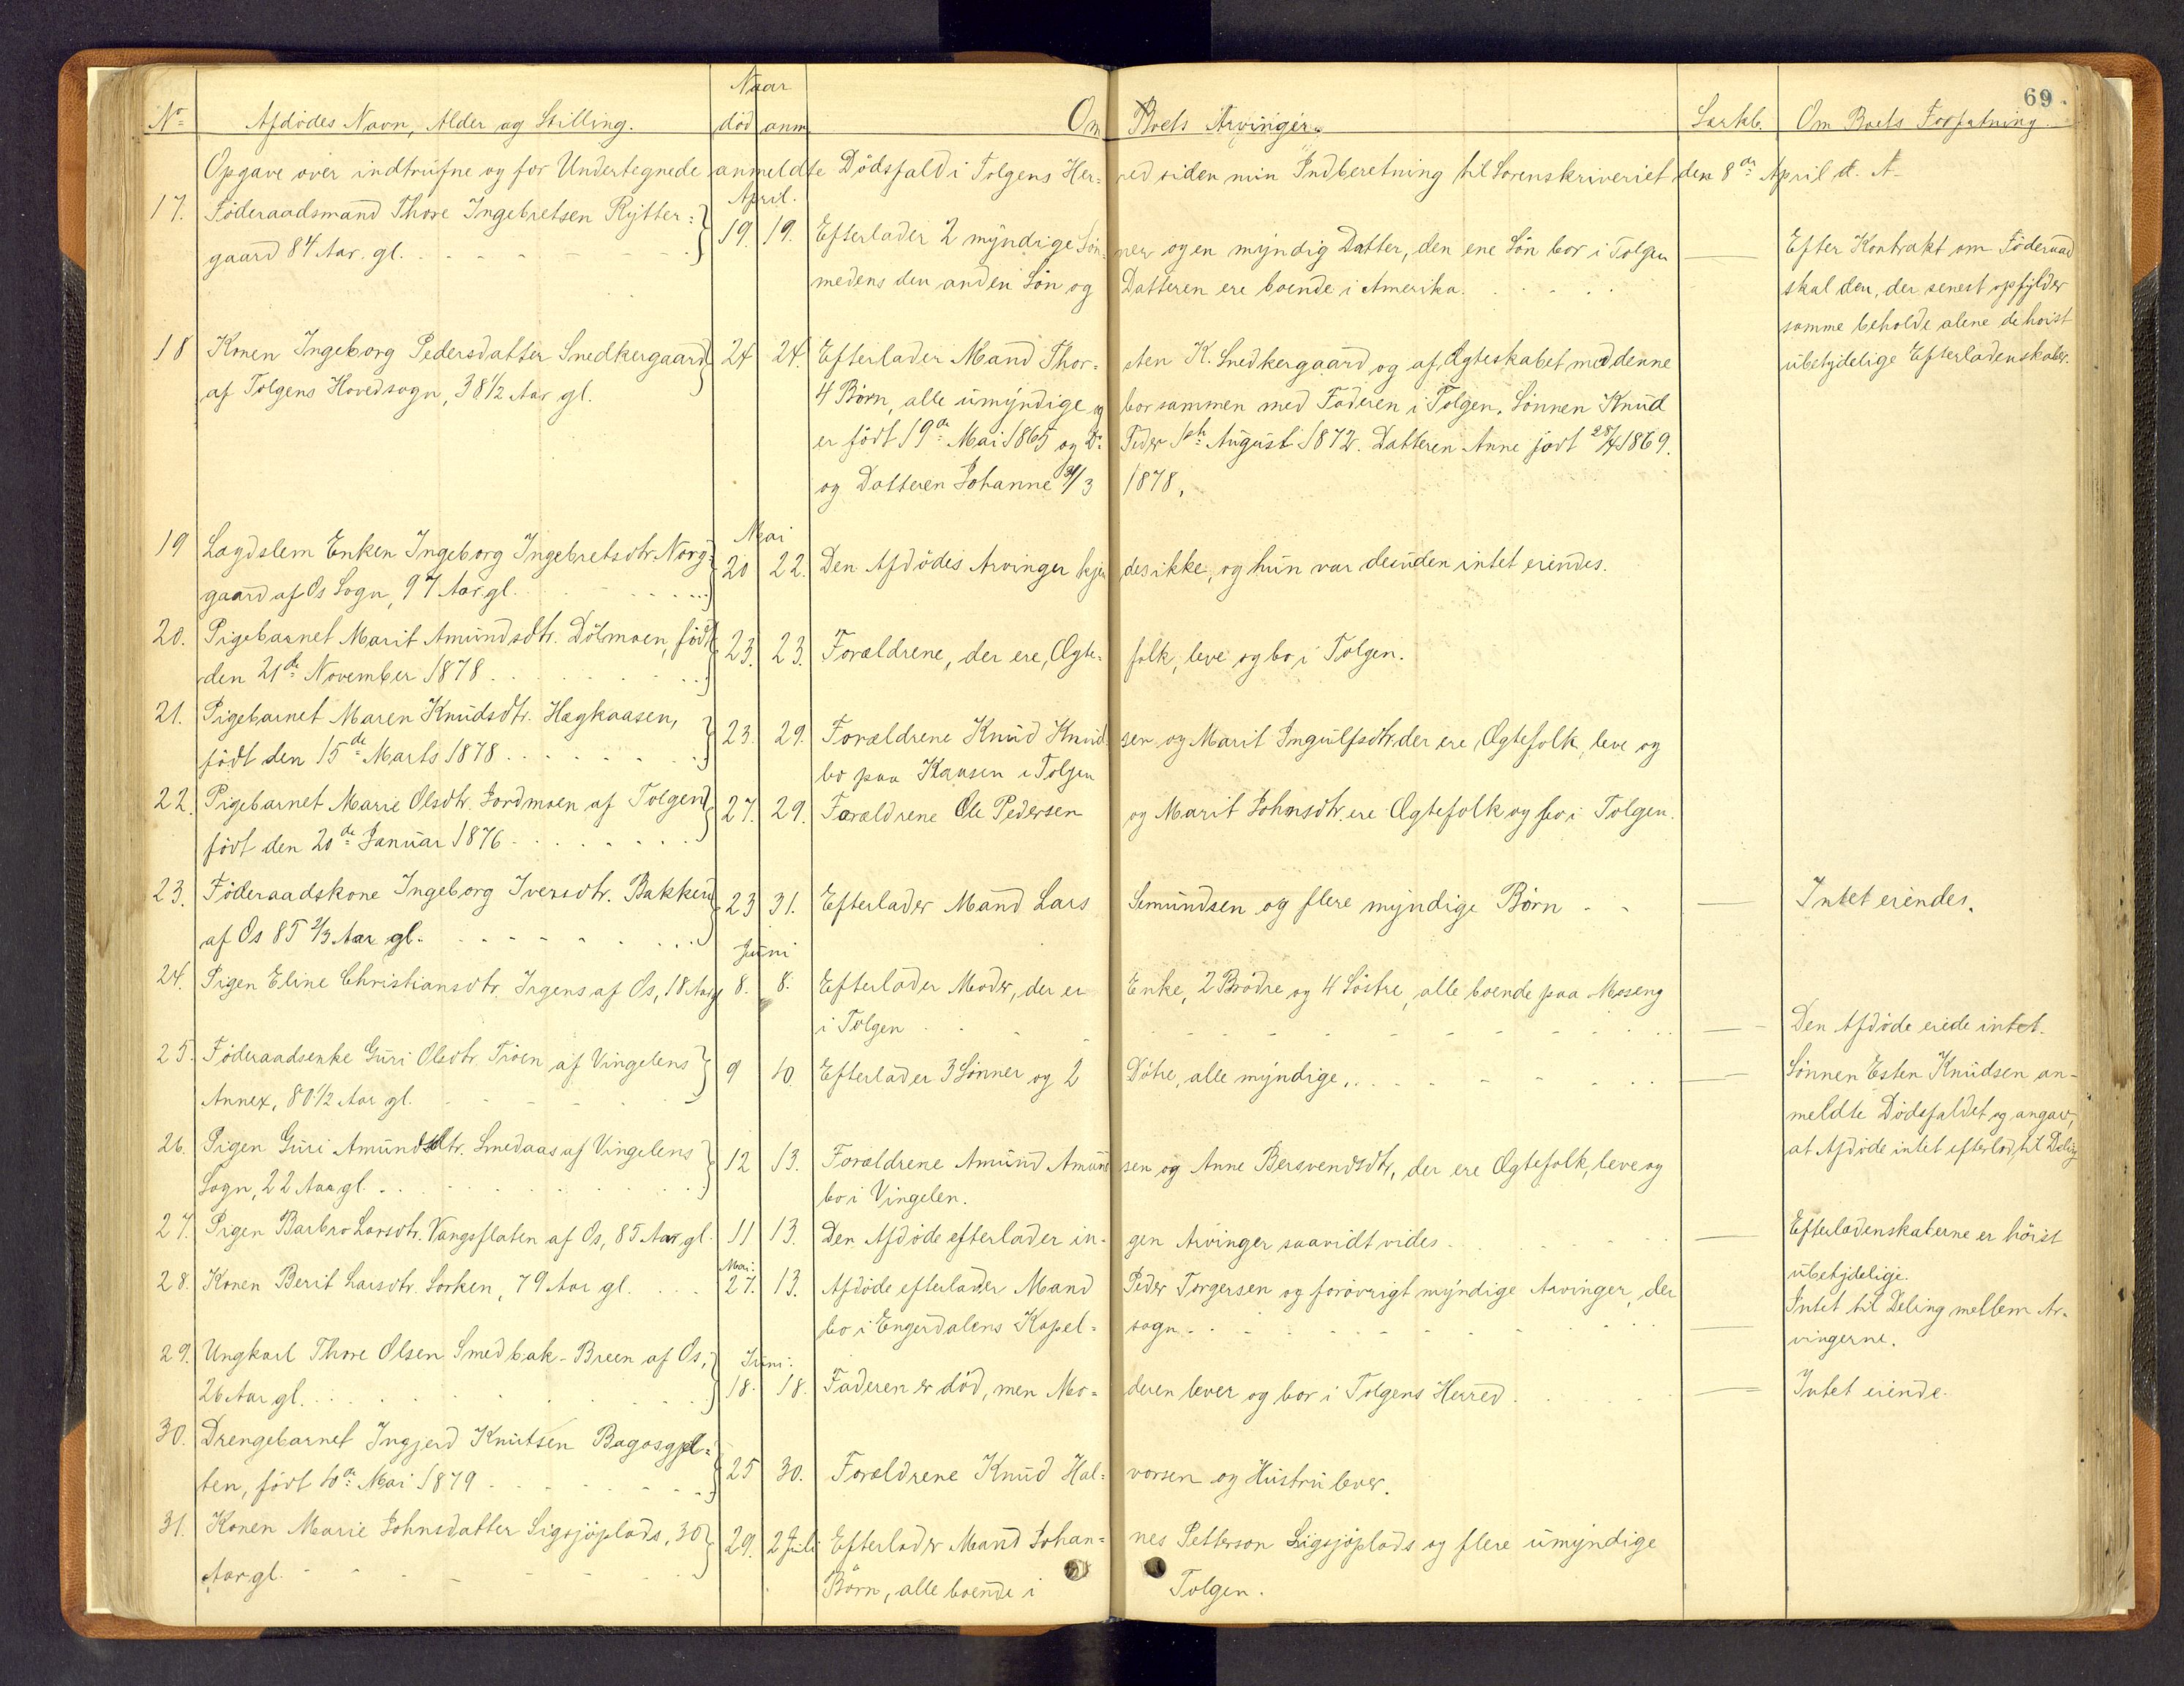 69.
Naar
No Afdödes Navn, Alder og Stilling. död anm Om Boets Arvinger. Om Boets Forfatning.
Opgave over indtrufne og for Undertegnede anmeldte Dödsfald i Tolgens Her= red siden min Indberetning til Sorenskriveriet den 8de April d. A.
April.
17. Föderaadsmand Thore Ingebretsen Rytter= 19. 19. Efterlader 2 myndige Sön= ner og en myndig Datter, den ene Sön bor i Tolgen — Efter Kontrakt om Föderaad
gaard 84 Aar. gl. medens den anden Sön og Datteren ere boende i Amerika. skal den, der senest opfylder
samme beholde alene de höist
18 Konen Ingeborg Pedersdatter Snedkergaard 24 24. Efterlader Mand Thor= sten K. Snedkergaard og af Ægteskabet med denne ubetydelige Efterladenskaber.
af Tolgens Hovedsogn, 38 1/2 Aar gl. 4 Börn, alle umyndige og bor sammen med Faderen i Tolgen. Sönnen Knud
er födt 19de Mai 1865 og Do Peder 1ste August 1872. Datteren Anne födt 28/4 1869.
og Datteren Johanne /3 1878.
Mai
19 Lagdslem Enken Ingeborg Ingebretsdtr. Norg= 20 22. Den Afdödes Arvinger kjen des ikke, og hun var desuden intet eiendes.
gaard af Os Sogn, 97 Aar. gl.
20. Pigebarnet Marit Amundsdtr. Dölmoen, födt 23. 23. Forældrene, der ere, Ægte= folk, leve og bo i Tolgen.
den 21de November 1878
21. Pigebarnet Maren Knudsdtr. Hagkaasen, 23. 29. Forældrene Knud Knud sen og Marit Ingulfsdtr. der ere Ægtefolk, leve og
födt den 15de Marts 1878 bo paa Kaasen i Tolgen
22. Pigebarnet Marie Olsdtr. Jordmoen af Tolgen 27. 29. Forældrene Ole Pedersen og Marit Johnsdtr. ere Ægtefolk og bo i Tolgen.
födt den 20de Januar 1876
23. Föderaadskone Ingeborg Iversdtr. Bakken 23 31. Efterlader Mand Lars Semundsen og flere myndige Börn — Intet eiendes.
af Os 85 2/3 Aar gl.
Juni
24. Pigen Eline Christiansdtr. Irgens af Os, 18 Aar gl 8. 8. Efterlader Moder, der er Enke, 2 Brödre og 4 Söstre, alle boende paa Moseng
i Tolgen — Den Afdöde eiede intet.
25. Föderaadsenke Guri Olsdtr. Tröen af Vingelens 9 10. Efterlader 3 Sönner og 2 Dötre, alle myndige. — Sönnen Esten Knudsen an-
Annex, 80 1/2 Aar gl. meldte Dödsfaldet og angav,
26. Pigen Guri Amundsdtr. Smedaas af Vingelens 12 13. Forældrene Amund Amund sen og Anne Bersvendsdtr, der ere Ægtefolk, leve og at Afdöde intet efterlod til Deling
Sogn, 22 Aar gl. bo i Vingelen.
27. Pigen Barbro Larsdtr. Vangsflaten af Os, 85 Aar gl. 11 13. Den Afdöde efterlader in- gen Arvinger saavidt vides. — Efterladenskaberne er höist
ubetydelige.
Mai:
28. Konen Berit Larsdtr. Sorken, 79 Aar gl. 27. 13. Afdöde efterlader Mand Peder Torgersen og forövrigt myndige Arvinger, der Intet til Deling mellem Ar-
bo i Engerdalens Kapel= sogn. — vingerne.
29. Ungkarl Thore Olsen Smedbak-Breen af Os, Juni. 18. 18. Faderen er död, men Mo= deren lever og bor i Tolgens Herred. — Intet eiende.
26 Aar gl.
30. Drengebarnet Ingjerd Knutsen 25 30. Forældrene Knud Hal= vorsen og Hustru lever.
ten, födt 10de Mai 1879
31. Konen Marie Johnsdatter Sigsjöplads, 30 29. 2 Juli Efterlader Mand Johan= nes Petterson Sigsjöplads og flere umyndige
Aar gl. Börn, alle boende i Tolgen.